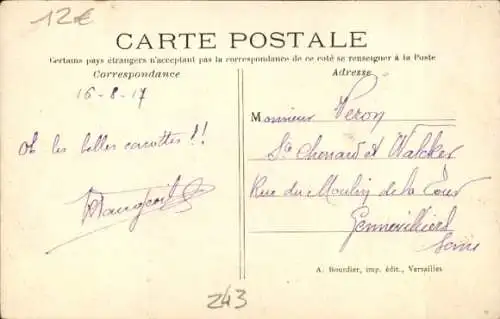 12€
CARTE POSTALE
Certains pays étrangers n'acceptant pas la correspondance de ce coté se renseigner à la Poste
Correspondance
Adresse
16-8-17
Oh les belles carottes!!
Monsieur Veron
Sté Chenard et Walcker
Rue du Moulin de la Tour
Gennevilliers
Seine
A. Bourdier, imp. édit., Versailles
243